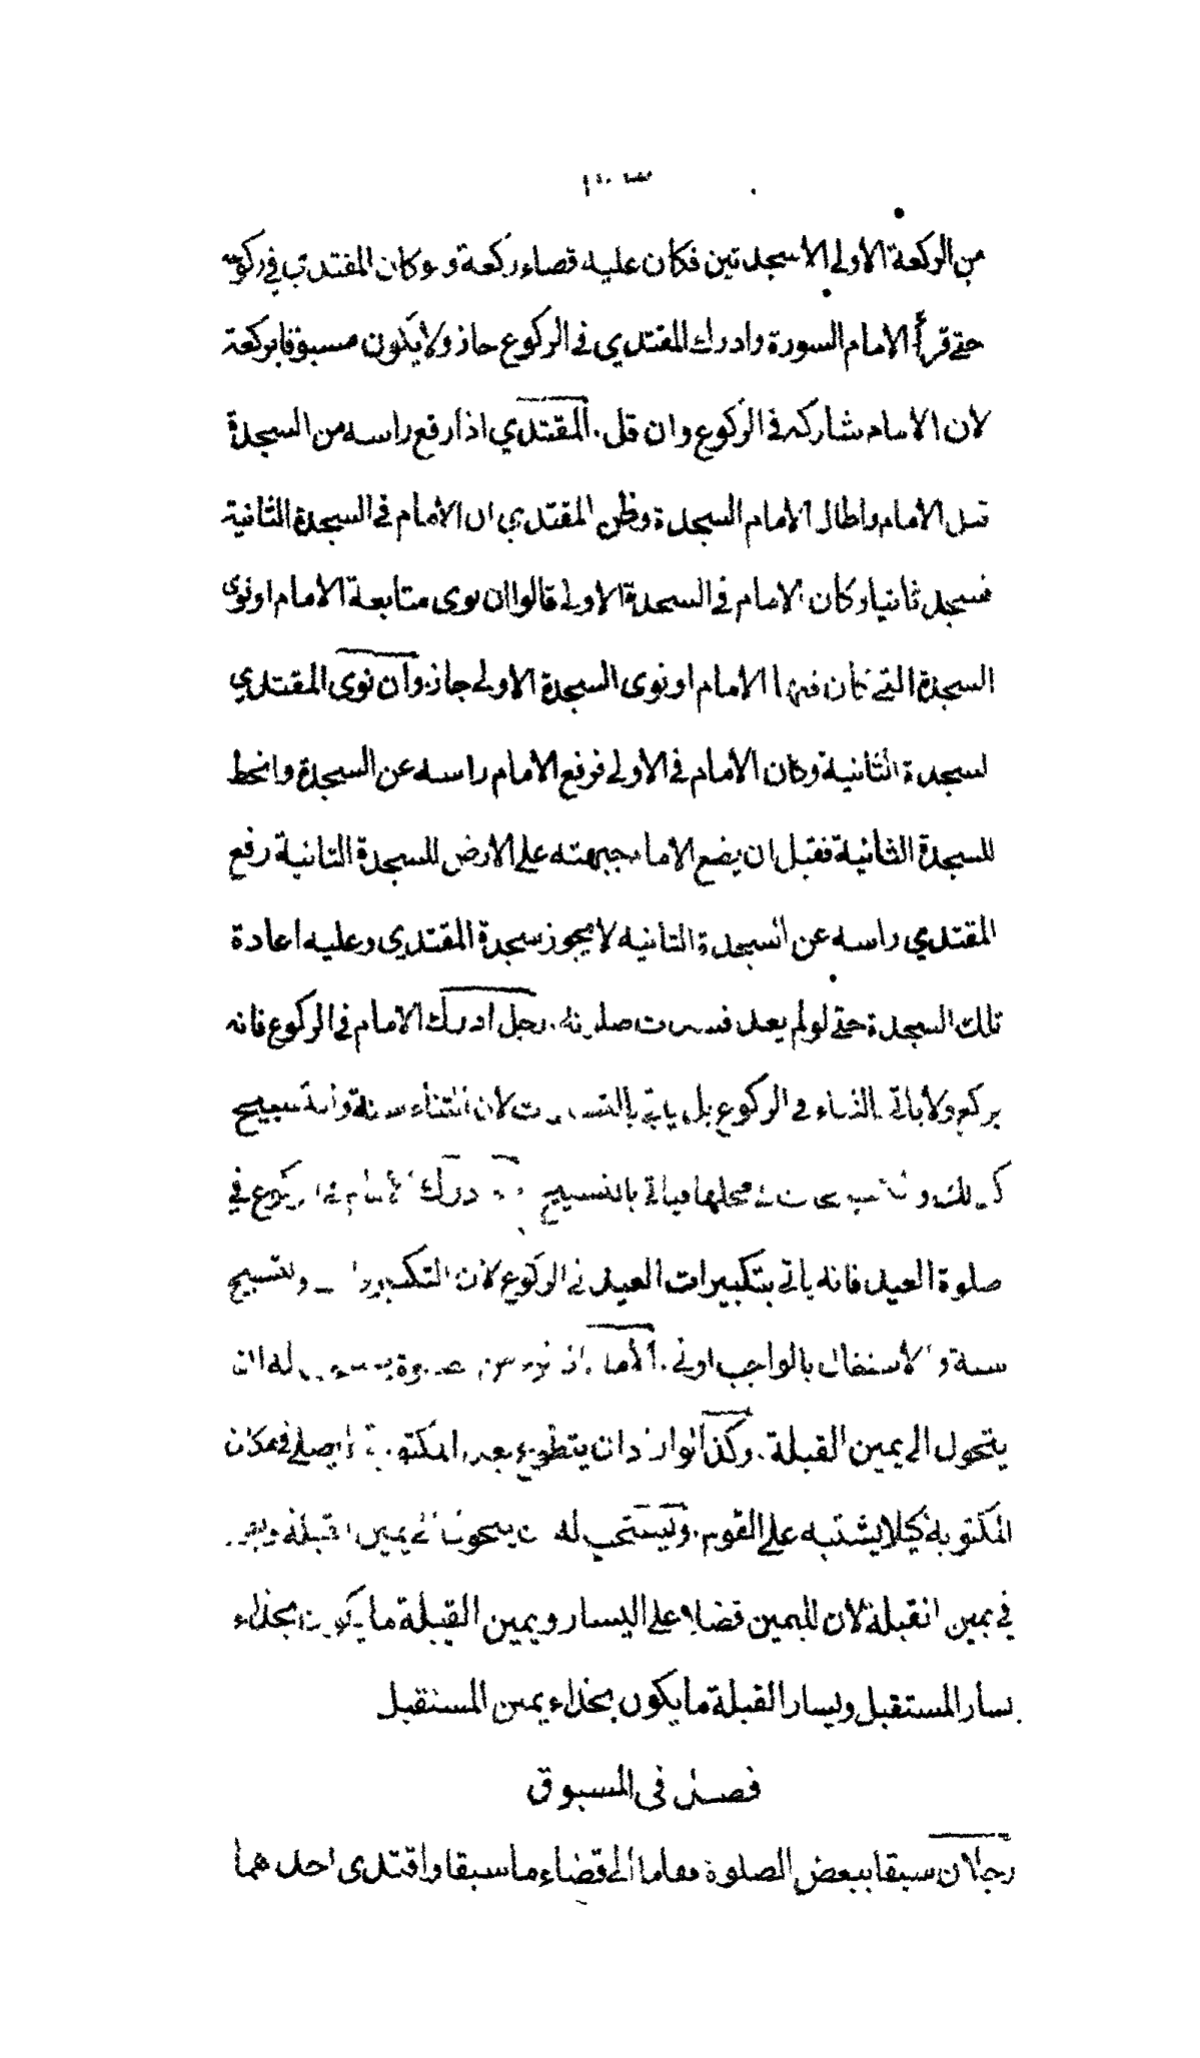 ١٠٣
من الركعة الاولى الا سجدتين فكان عليه قضاء ركعة ولو كان المقتدى في ركوعه
حتى قرأ الامام السورة وادرك المقتدي في الركوع جاز ولا يكون مسبوقا بركعة
لان الامام شاركه في الركوع وان قل. المقتدي اذا رفع راسه من السجدة
قبل الامام واطال الامام السجدة وظن المقتدي ان الامام في السجدة الثانية
فسجد ثانيا وكان الامام في السجدة الاولى قالوا ان نوى متابعة الامام او نوى
السجدة التي كان فيها الامام او نوى السجدة الاولى جاز. وان نوى المقتدي
لسجدة الثانية وكان الامام في الاولى فرفع الامام راسه عن السجدة وانحط
للسجدة الثانية فقبل ان يضع الامام جبهته على الارض للسجدة الثانية رفع
المقتدي راسه عن السجدة الثانيه لا يجوز سجدة المقتدي وعليه اعادة
تلك السجدة حتى لو لم يعد فسدت صلوته. رجل ادرك الامام في الركوع فانه
يركع ولا ياتي بالثناء في الركوع بل ياتي بالتسبيحات لان الثناء سنة والتسبيح
كذلك محلها فياتي بالتسبيح ادرك الامام في الركوع في
صلوة العيد فانه ياتي بتكبيرات العيد في الركوع لان التكبير والتسبيح
سنة والاشتغال بالواجب اولى. الامام اذا فرغ من صلوة له ان
يتحول الى يمين القبلة. وكذا لو اراد ان يتطوع بعد المكتوبة لا يصلي في مكان
المكتوبة كيلا يشتبه على القوم. ويستحب له ان يتحول الى يمين القبلة
في يمين القبلة لان لليمين فضلا على اليسار ويمين القبلة ما يكون بحذاء
يسار المستقبل ويسار القبلة ما يكون بحذاء يمين المستقبل
فصل في المسبوق
رجلان سبقا ببعض الصلوة فقاما الى قضاء ما سبقا واقتدى احدهما